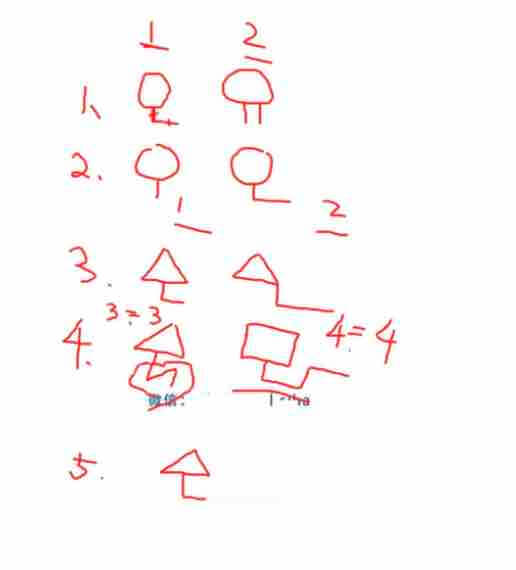 1 2
1、
2.
1 2
3.
3=3
4. 4=4
微信:
5.